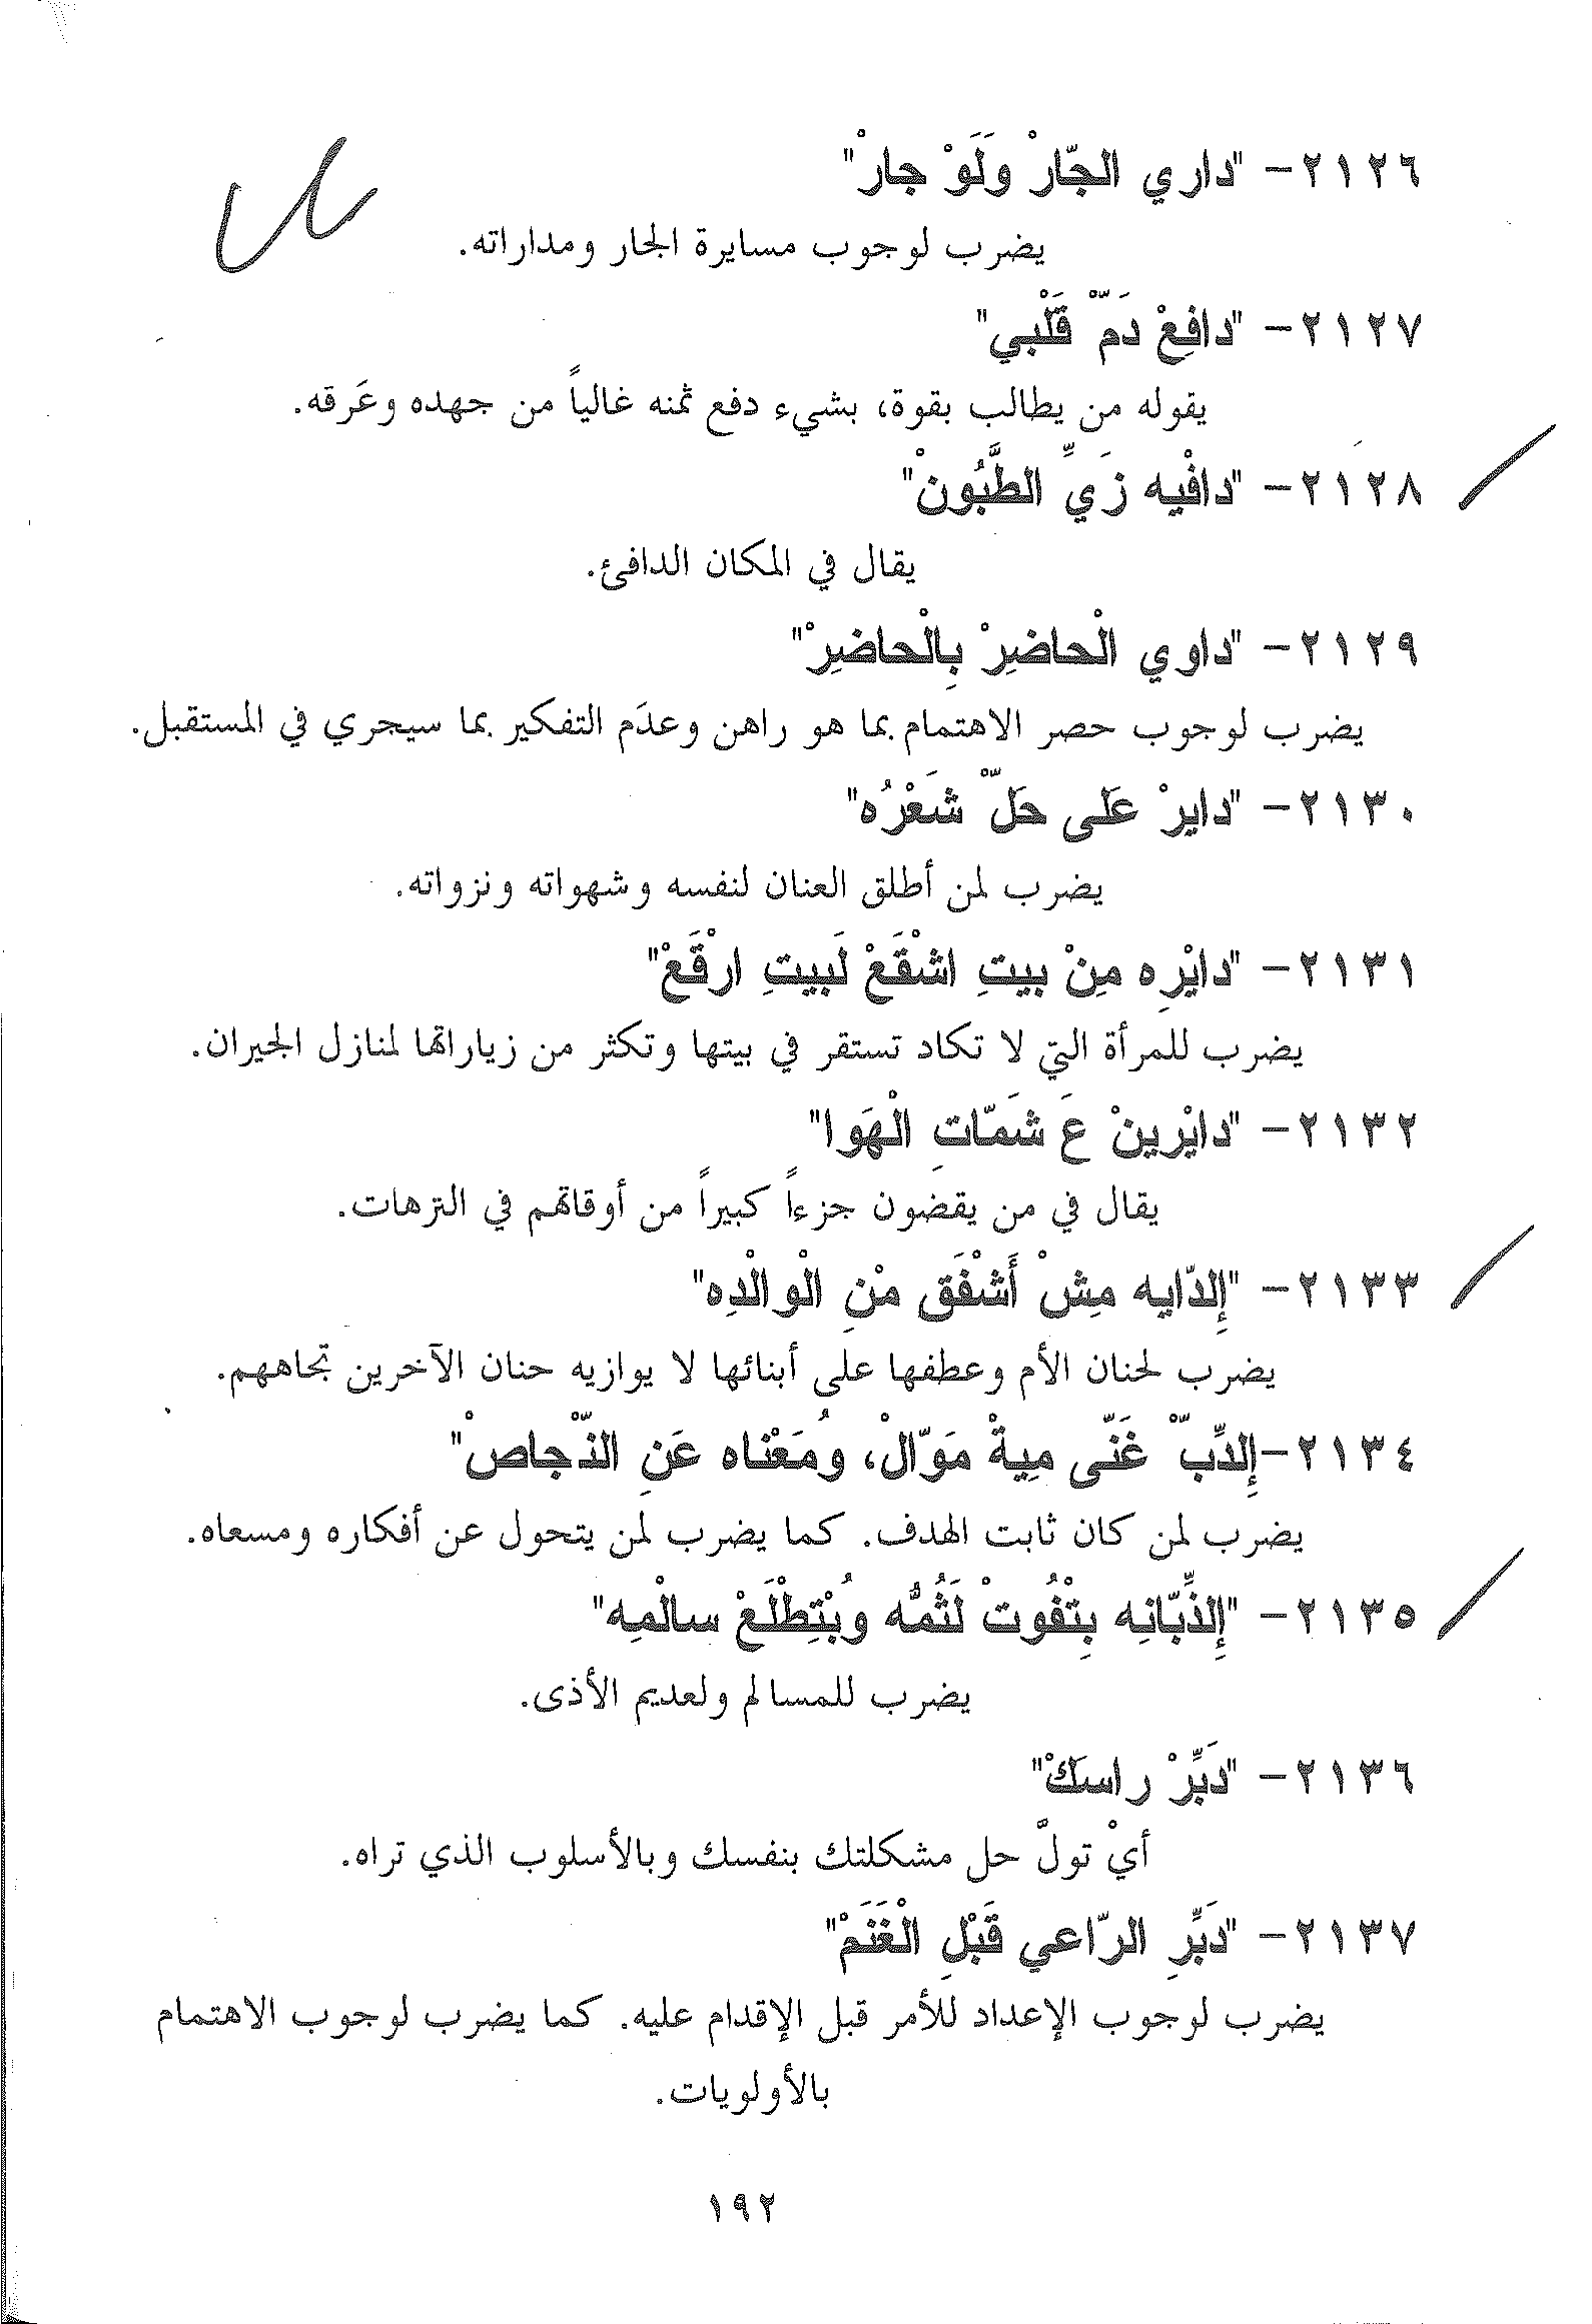 ٢١٢٦- "داري الجّارْ وَلَوْ جارْ"
يضرب لوجوب مسايرة الجار ومداراته.
٢١٢٧- "دافِعْ دَمّْ قَلْبي"
يقوله من يطالب بقوة، بشيء دفع ثمنه غالياً من جهده وعَرقه.
٢١٢٨- "دافْيِه زَيِّ الطَّبُّونْ"
يقال في المكان الدافئ.
٢١٢٩- "داوي الْحاضِرْ بِالْحاضِرْ"
يضرب لوجوب حصر الاهتمام بما هو راهن وعدَم التفكير بما سيجري في المستقبل.
٢١٣٠- "دايرْ عَلى حَلّْ شَعْرُه"
يضرب لمن أطلق العنان لنفسه وشهواته ونزواته.
٢١٣١- "دايْرِه مِنْ بيتِ اشْقَعْ لَبيتِ ارْقَعْ"
يضرب للمرأة التي لا تكاد تستقر في بيتها وتكثر من زياراتها لمنازل الجيران.
٢١٣٢- "دايْرينْ عَ شَمّاتِ الْهَوا"
يقال في من يقضون جزءاً كبيراً من أوقاتهم في الترهات.
٢١٣٣- "إِلدّايِه مِشْ أَشْفَق مْنِ الْوالْدِه"
يضرب لحنان الأم وعطفها على أبنائها لا يوازيه حنان الآخرين تجاههم.
٢١٣٤-إِلدِّبّْ غَنّى مِيةْ مَوّالْ، ومَعْناه عَنِ النّْجاصْ"
يضرب لمن كان ثابت الهدف. كما يضرب لمن يتحول عن أفكاره ومسعاه.
٢١٣٥- "إِلذِّبّانِه بِتْفُوتْ لَثُمُّه وبْتِطْلَعْ سالْمِه"
يضرب للمسالم ولعديم الأذى.
٢١٣٦- "دَبِّرْ راسَكْ"
أيْ تولَّ حل مشكلتك بنفسك وبالأسلوب الذي تراه.
٢١٣٧- "دَبِّرِ الرّاعي قَبْلِ الْغَنَمْ"
يضرب لوجوب الإعداد للأمر قبل الإقدام عليه. كما يضرب لوجوب الاهتمام
بالأولويات.
١٩٢